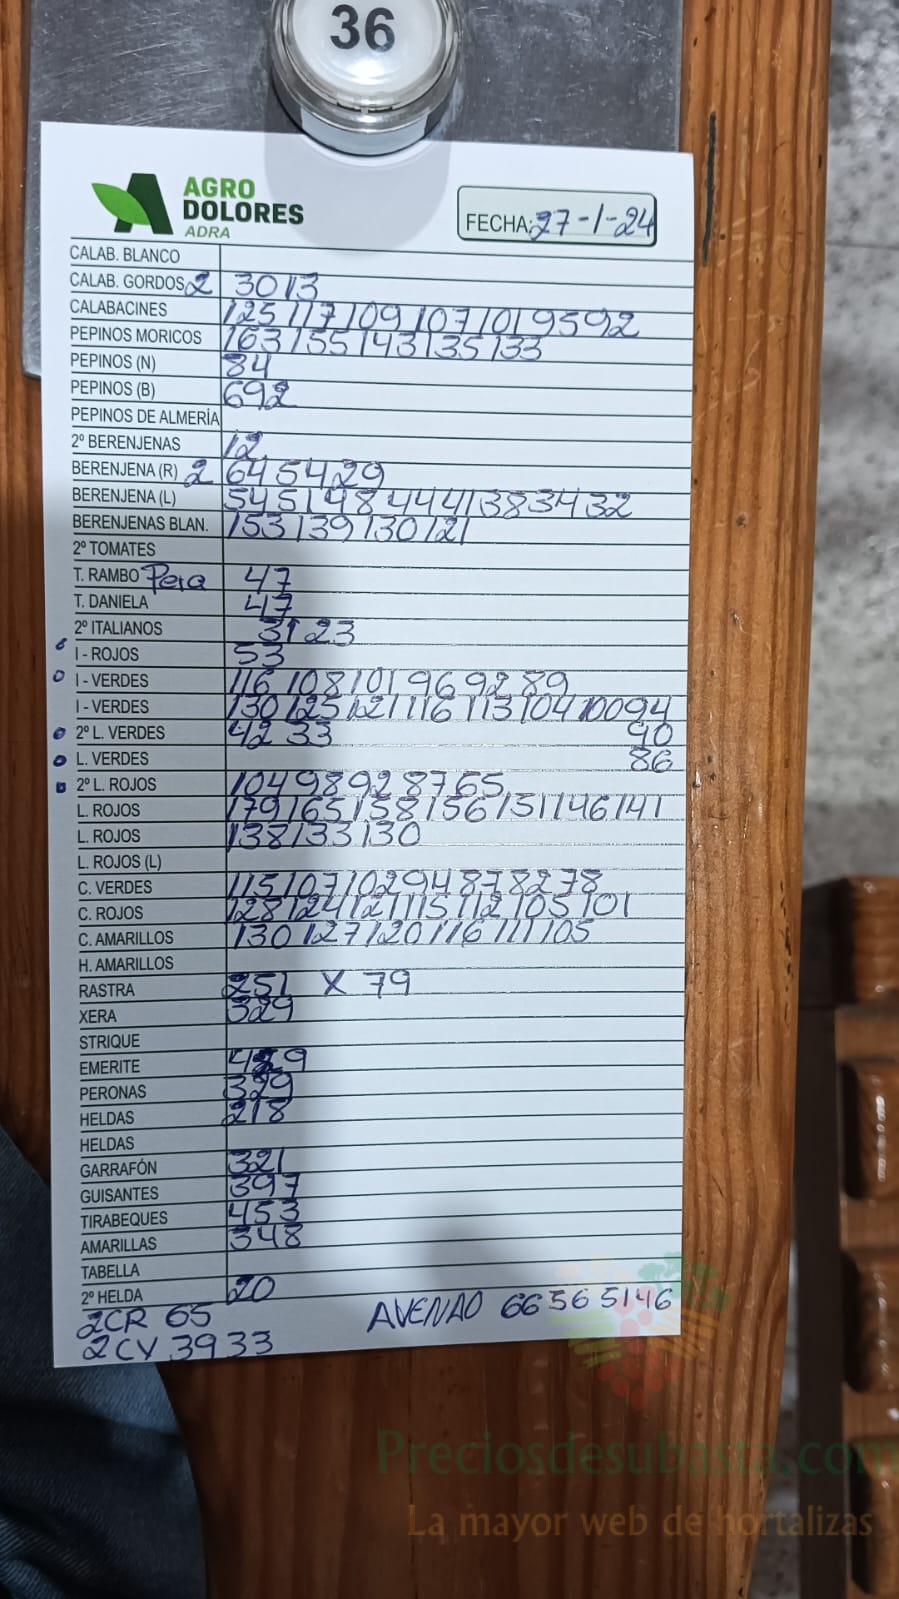 36
AGRO
DOLORES
ADRA
FECHA: 27-1-24
CALAB. BLANCO
CALAB. GORDOS 2 30 13
CALABACINES 125 117 109 107 101 95 92
PEPINOS MORICOS 163 155 143 135 133
PEPINOS (N) 84
PEPINOS (B) 692
PEPINOS DE ALMERÍA
2º BERENJENAS 12
BERENJENA (R) 2 64 54 29
BERENJENA (L) 54 51 48 44 41 38 34 32
BERENJENAS BLAN. 153 139 130 121
2º TOMATES
T. RAMBO Pera 47
T. DANIELA 47
2º ITALIANOS 31 23
I - ROJOS 53
I - VERDES 116 108 101 96 92 89
I - VERDES 130 125 121 116 113 104 100 94
2º L. VERDES 42 33 90
L. VERDES 86
2º L. ROJOS 104 98 92 87 65
L. ROJOS 179 165 158 156 151 146 141
L. ROJOS 138 133 130
L. ROJOS (L)
C. VERDES 115 107 102 94 87 82 78
C. ROJOS 128 124 121 115 112 105 101
C. AMARILLOS 130 127 120 116 111 105
H. AMARILLOS
RASTRA 251 X 79
XERA 329
STRIQUE
EMERITE
PERONAS 329
HELDAS 218
HELDAS
GARRAFÓN 321
GUISANTES 397
TIRABEQUES 453
AMARILLAS 348
TABELLA
2º HELDA 20
2CR 65 AVENAO 66 56 51 46
2CV 39 33
Preciosdesubasta.com
La mayor web de hortalizas